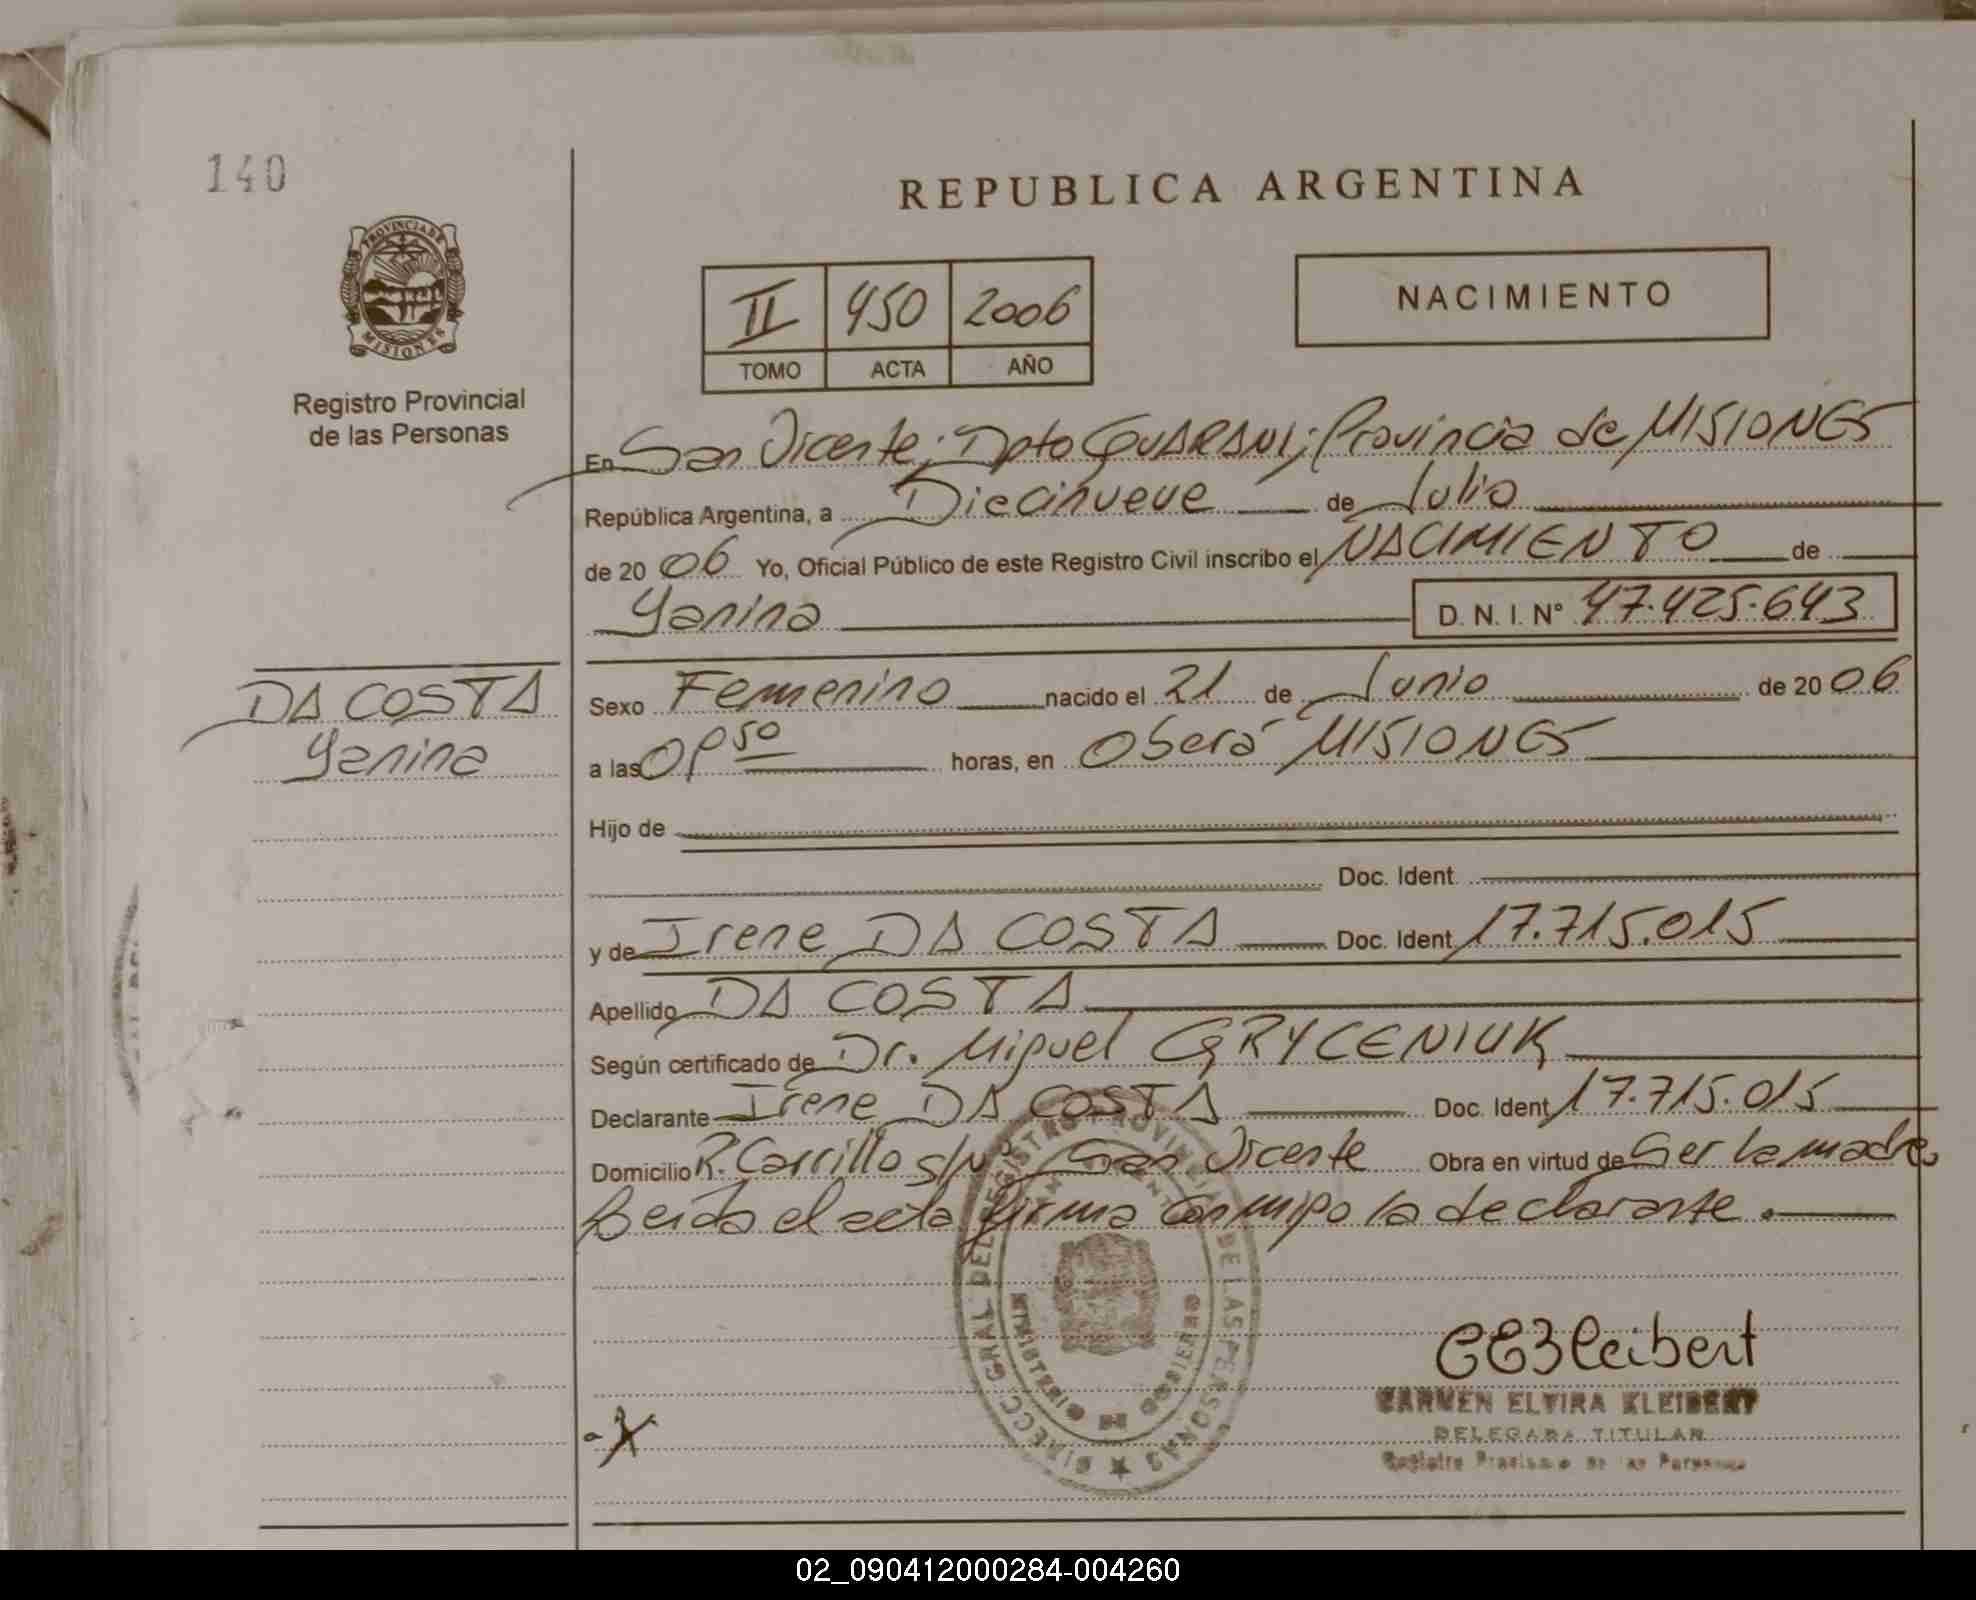 140
REPUBLICA ARGENTINA
PROVINCIA DE
MISIONES
Registro Provincial
de las Personas
II 450 2006
TOMO ACTA AÑO
NACIMIENTO
En San Vicente; Dpto GUARANI; Provincia de MISIONES
República Argentina, a Diecinueve de Julio
de 20 06 Yo, Oficial Público de este Registro Civil inscribo el NACIMIENTO de
Yanina D. N. I. N° 47.425.643
DA COSTA
Yanina
Sexo Femenino nacido el 21 de Junio de 20 06
a las horas, en Oberá MISIONES
Hijo de
Doc. Ident.
y de Irene DA COSTA Doc. Ident. 17.715.015
Apellido DA COSTA
Según certificado de Dr. Miguel GRYCENIUK
Declarante Irene DA COSTA Doc. Ident. 17.715.015
Domicilio R. Carrillo s/Nº San Vicente Obra en virtud de Ser la madre
Leida el acta firma conmigo la declarante.
DIRECC GRAL DEL REGISTRO PROVINCIAL DE LAS PERSONAS
MINISTERIO DE GOBIERNO
CEKleibert
CARMEN ELVIRA KLEIBERT
DELEGADA TITULAR
Registro Provincial de las Personas
02_090412000284-004260